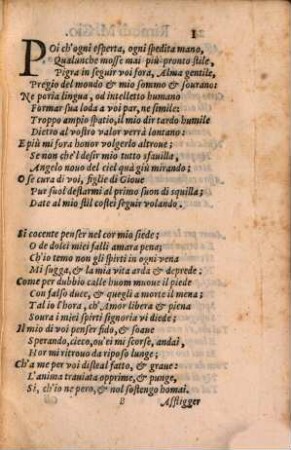 1
POi ch'ogni esperta, ogni spedita mano,
Qualunche mosse mai più pronto stile,
Pigra in seguir voi fora, Alma gentile,
Pregio del mondo & mio sommo & sourano:
Ne poria lingua, od intelletto humano
Formar sua loda a voi par, ne simile:
Troppo ampio spatio, il mio dir tardo humile
Dietro al vostro valor verrà lontano:
E più mi fora honor volgerlo altroue:
Se non che'l desir mio tutto sfauilla,
Angelo nouo del ciel quà giù mirando;
O se cura di voi, figlie di Gioue
Pur suol destarmi al primo suon di squilla;
Date al mio stil costei seguir volando.
SI cocente pensier nel cor mio siede;
O de dolci miei falli amara pena;
Ch'io temo non gli spirti in ogni vena
Mi sugga, & la mia vita arda & deprede.
Come per dubbio calle huom muoue il piede
Con falso duce, & quegli a morte il mena;
Tal io l'hora, ch'Amor libera & piena
Soura i miei spirti signoria vi diede;
Il mio di voi penser fido, & soaue
Sperando, cieco, ou'ei mi scorse, andai,
Hor mi ritrouo da riposo lunge;
Ch'a me per voi disleal fatto, & graue:
L'anima trauiata opprime, & punge,
Si, ch'io ne pero, & nol sostengo homai.
B Affligger